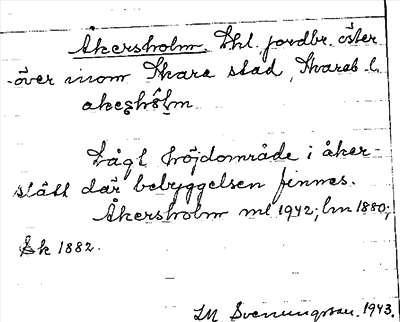 Åkersholm. Lhl. jordbr. öster
över inom Skara stad, Skarab. l.
akeshòlm
Lågt höjdområde i åker-
slätt där bebyggelsen finnes.
Åkersholm ml 1942; lm 1880;
Ek 1882.
IM Svenungsson. 1943.